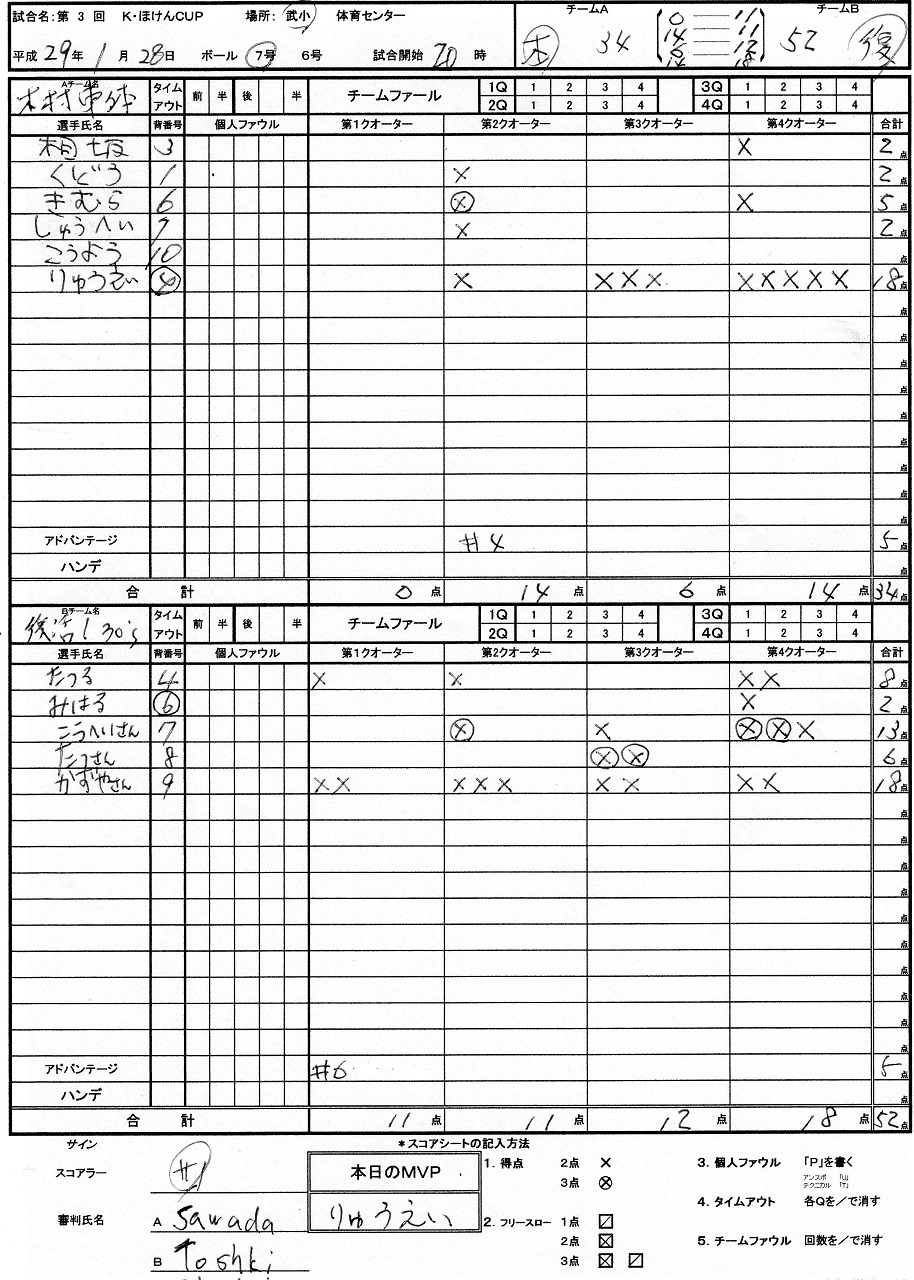 試合名:第 3 回 K・ほけんCUP 場所: 武小 体育センター
平成 29年 1月 28日 ボール 7号 6号 試合開始 20 時
チームA チームB
木 34 52 復
0 — 11
14 — 11
6 — 12
14 — 18
Aチーム名
木村東体
タイムアウト 前 半 後 半 チームファール 1Q 1 2 3 4 3Q 1 2 3 4
2Q 1 2 3 4 4Q 1 2 3 4
選手氏名 背番号 個人ファウル 第1クオーター 第2クオーター 第3クオーター 第4クオーター 合計
3 X 2点
くどう 1 X 2点
きむら 6 ⊗ X 5点
しゅうへい 7 X 2点
こうよう 10 点
りゅうえい 4 X X X X X X X X X 18点
アドバンテージ #4 5点
ハンデ 点
合 計 0点 14点 6点 14点 34点
Bチーム名
復活！30's
タイムアウト 前 半 後 半 チームファール 1Q 1 2 3 4 3Q 1 2 3 4
2Q 1 2 3 4 4Q 1 2 3 4
選手氏名 背番号 個人ファウル 第1クオーター 第2クオーター 第3クオーター 第4クオーター 合計
たつる 4 X X X X 8点
みはる 6 X 2点
こうへいさん 7 ⊗ X ⊗ ⊗ X 13点
たつさん 8 ⊗ ⊗ 6点
かずやさん 9 X X X X X X X X X 18点
アドバンテージ #6 5点
ハンデ 点
合 計 11点 11点 12点 18点 52点
サイン
*スコアシートの記入方法
スコアラー
本日のMVP
りゅうえい
審判氏名 A Sawada
B Toshki
1. 得点 2点 ×
3点 ⊗
2. フリースロー 1点 ⧄
2点 ⊠
3点 ⊠ ⧄
3. 個人ファウル 「P」を書く
アンスポ 「U」
テクニカル 「T」
4. タイムアウト 各Qを/で消す
5. チームファウル 回数を/で消す